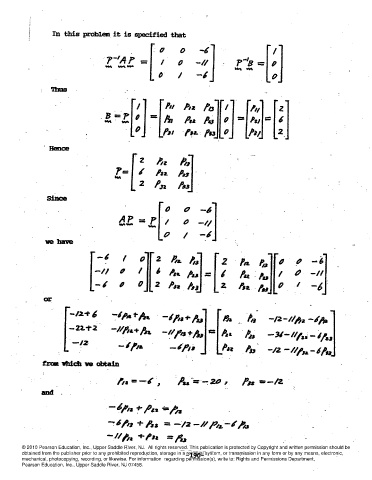 In this problem it is specified that
P⁻¹AP = [0 0 -6; 1 0 -11; 0 1 -6] P⁻¹B = [1; 0; 0]
Thus
B = P [1; 0; 0] = [P11 P12 P13; P21 P22 P23; P31 P32 P33] [1; 0; 0] = [P11; P21; P31] = [2; 6; 2]
Hence
P = [2 P12 P13; 6 P22 P23; 2 P32 P33]
Since
AP = P [0 0 -6; 1 0 -11; 0 1 -6]
we have
[-6 1 0; -11 0 1; -6 0 0] [2 P12 P13; 6 P22 P23; 2 P32 P33] = [2 P12 P13; 6 P22 P23; 2 P32 P33] [0 0 -6; 1 0 -11; 0 1 -6]
or
[-12+6 -6P12+P22 -6P13+P23; -22+2 -11P12+P32 -11P13+P33; -12 -6P12 -6P13] = [P12 P13 -12-11P12-6P13; P22 P23 -36-11P22-6P23; P32 P33 -12-11P32-6P33]
from which we obtain
P12 = -6 , P22 = -20 , P32 = -12
and
-6P12 + P22 = P13
-6P13 + P23 = -12 - 11P12 - 6P13
-11P12 + P32 = P23
© 2010 Pearson Education, Inc., Upper Saddle River, NJ. All rights reserved. This publication is protected by Copyright and written permission should be
obtained from the publisher prior to any prohibited reproduction, storage in a retrieval system, or transmission in any form or by any means, electronic,
mechanical, photocopying, recording, or likewise. For information regarding permission(s), write to: Rights and Permissions Department,
Pearson Education, Inc., Upper Saddle River, NJ 07458.